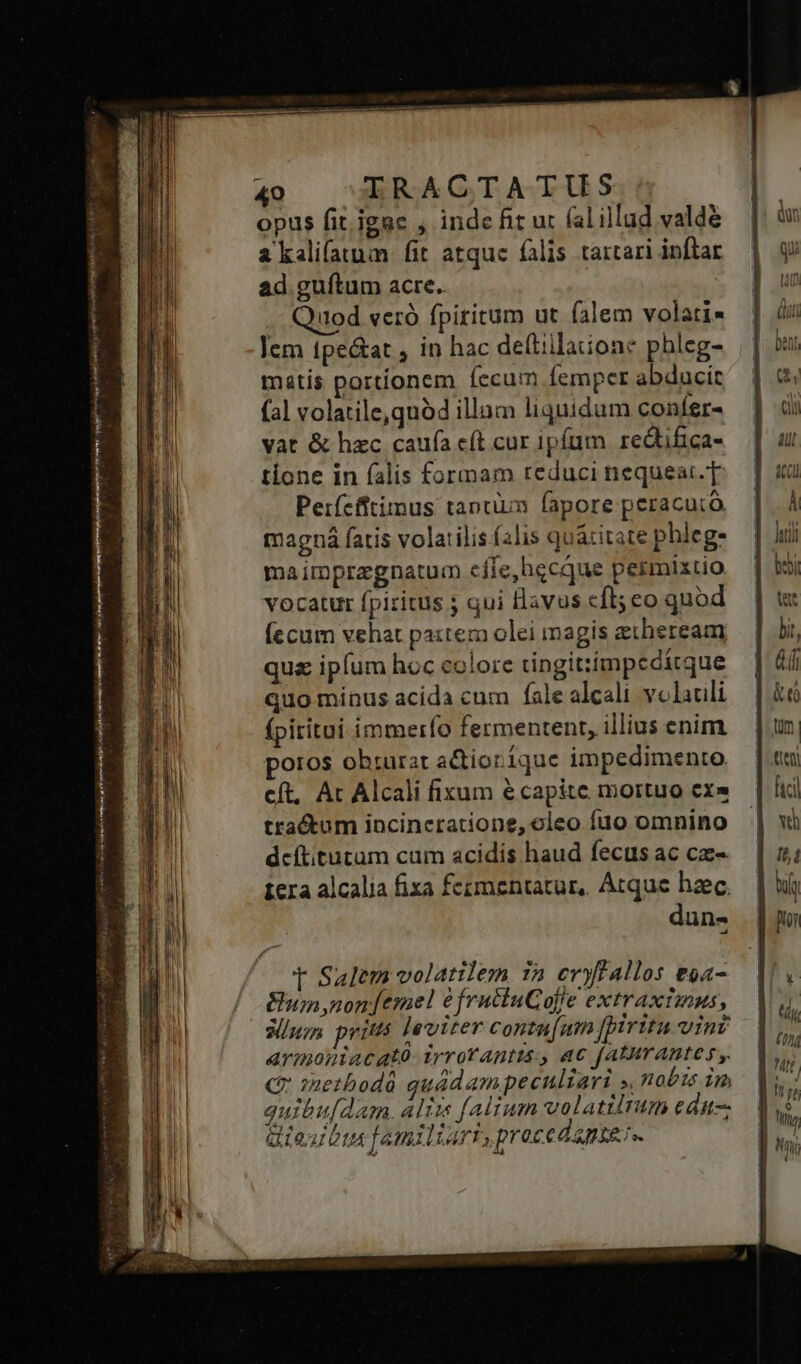 40 TRACTATUS
opus ſit igne, inde fit ut ſal illud valdè
a kaliſatum ſit atque ſalis tartari inſtar
ad guſtum acre.
Quod verò ſpiritum ut ſalem volati-
lem ſpectat, in hac deſtillatione phleg-
matis portionem ſecum ſemper abducit
ſal volatile, quòd illum liquidum conſer-
vat & hæc cauſa eſt cur ipſum rectifica-
tione in ſalis formam reduci nequeat.†
Perſefftimus tantùm ſapore peracutò
magnâ ſatis volatilis ſalis quãtitate phleg-
ma imprægnatum eſſe, hęcque permixtio
vocatur ſpiritus; qui flavus eſt; eo quòd
ſecum vehat partem olei magis ætheream
quæ ipſum hoc colore tingit: impedítque
quo minus acida cum ſale alcali volatili
ſpiritui immerſo fermentent, illius enim
poros obturat actioníque impedimento
eſt, At Alcali fixum è capite mortuo ex-
tractum incineratione, oleo ſuo omnino
deſtitutum cum acidis haud ſecus ac cæ-
tera alcalia fixa fermentatur, Atque hæc
dun-
† Salem volatilem in cryſtallos coa-
ctum, non ſemel è fructu Coffe extraximus,
illum priùs leviter contuſum ſpiritu vini
armoniacatò irrorantes, ac ſaturantes,
& methodô quâdam peculiari, nobis in
quibuſdam aliis ſalium volatilium edu-
ctionibus familiari, procedentes.